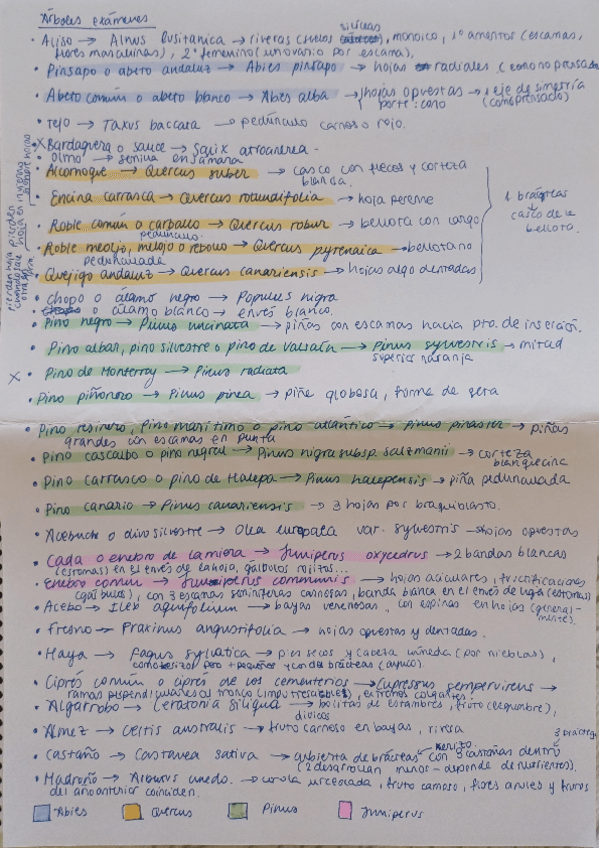 Árboles exámenes
• Aliso → Alnus lusitanica → riveras (suelos silíceas), monoico, 1º amentos (escamas,
flores masculinas), 2º femenino (un ovario por escama).
• Pinsapo o abeto andaluz → Abies pinsapo → hojas radiales (como no prensado
• Abeto común o abeto blanco → Abies alba → hojas opuestas → 1 eje de simetría
porte: cono (como prensado)
• Tejo → Taxus baccata → pedúnculo carnoso rojo.
X Bardaguera o sauce → Salix atrocinerea.
• Olmo → semilla en sámara
• Alcornoque → Quercus suber → casco con flecos y corteza
blanda.
• Encina carrasca → Quercus rotundifolia → hoja perenne
• Roble común o carballo → Quercus robur → bellota con largo
pedúnculo.
• Roble meoljo, melojo o rebollo → Quercus pyrenaica → bellota no
pedunculada
• Quejigo andaluz → Quercus canariensis → hojas algo dentadas
1 brácteas
↓
casco de la
bellota.
• chopo o álamo negro → Populus nigra
• o álamo blanco → envés blanco.
• Pino negro → Pinus uncinata → piñas con escamas hacia pto. de inserción.
• Pino albar, pino silvestre o pino de Valsaín → Pinus sylvestris → mitad
superior naranja
X • Pino de Monterrey → Pinus radiata
• Pino piñonero → Pinus pinea → piña globosa, forma de seta
• Pino resinero, Pino marítimo o pino atlántico → Pinus pinaster → piñas
grandes con escamas en punta
• Pino cascalbo o pino negral → Pinus nigra subsp. salzmanii → corteza
blanquecina
• Pino carrasco o pino de Halepa → Pinus halepensis → piña pedunculada
• Pino canario → Pinus canariensis → 3 hojas por braquiblasto.
• Acebuche o olivo silvestre → Olea europaea var. sylvestris → hojas opuestas
• Cada o enebro de la miera → Juniperus oxycedrus → 2 bandas blancas
(estomas) en el envés de la hoja, gálbulos rojitos...
• Enebro común → Juniperus communis → hojas aciculares, fructificaciones
(gálbulos), con 3 escamas seminíferas carnosas, banda blanca en el envés de hoja (estomas)
• Acebo → Ilex aquifolium → bayas venenosas, con espinas en hojas (general-
mente).
• Fresno → Fraxinus angustifolia → hojas opuestas y dentadas.
• Haya → Fagus sylvatica → pies secos y cabeza húmeda (por nieblas),
como erizo pero + pequeños y con 4 brácteas (ayuco).
• Ciprés común o ciprés de los cementerios → Cupressus sempervirens →
ramas perpendiculares al tronco (imputrescibles), extremos colgantes.
• Algarrobo → Ceratonia siliqua → bolitas de estambres, fruto (legumbre),
dioicos
• Almez → Celtis australis → fruto carnoso en bayas, rivera
• Castaño → Castanea sativa → cubierta de brácteas con 3 castañas dentro
(2 desarrollan menos - depende de nutrientes).
• Madroño → Arbutus unedo. → corola urceolada, fruto carnoso, flores anuales y frutos
del año anterior coinciden.
Abies Quercus Pinus Juniperus